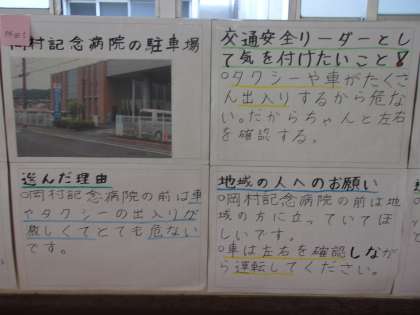 岡村記念病院の駐車場
選んだ理由
○岡村記念病院の前は車
やタクシーの出入りが
激しくてとても危ない
です。
交通安全リーダーとし
て気を付けたいこと8
○タクシーや車がたくさ
ん出入りするから危な
い。だからちゃんと左右
を確認する。
地域の人へのお願い
○岡村記念病院の前は地
域の方に立っていてほ
しいです。
○車は左右を確認しなが
ら運転してください。